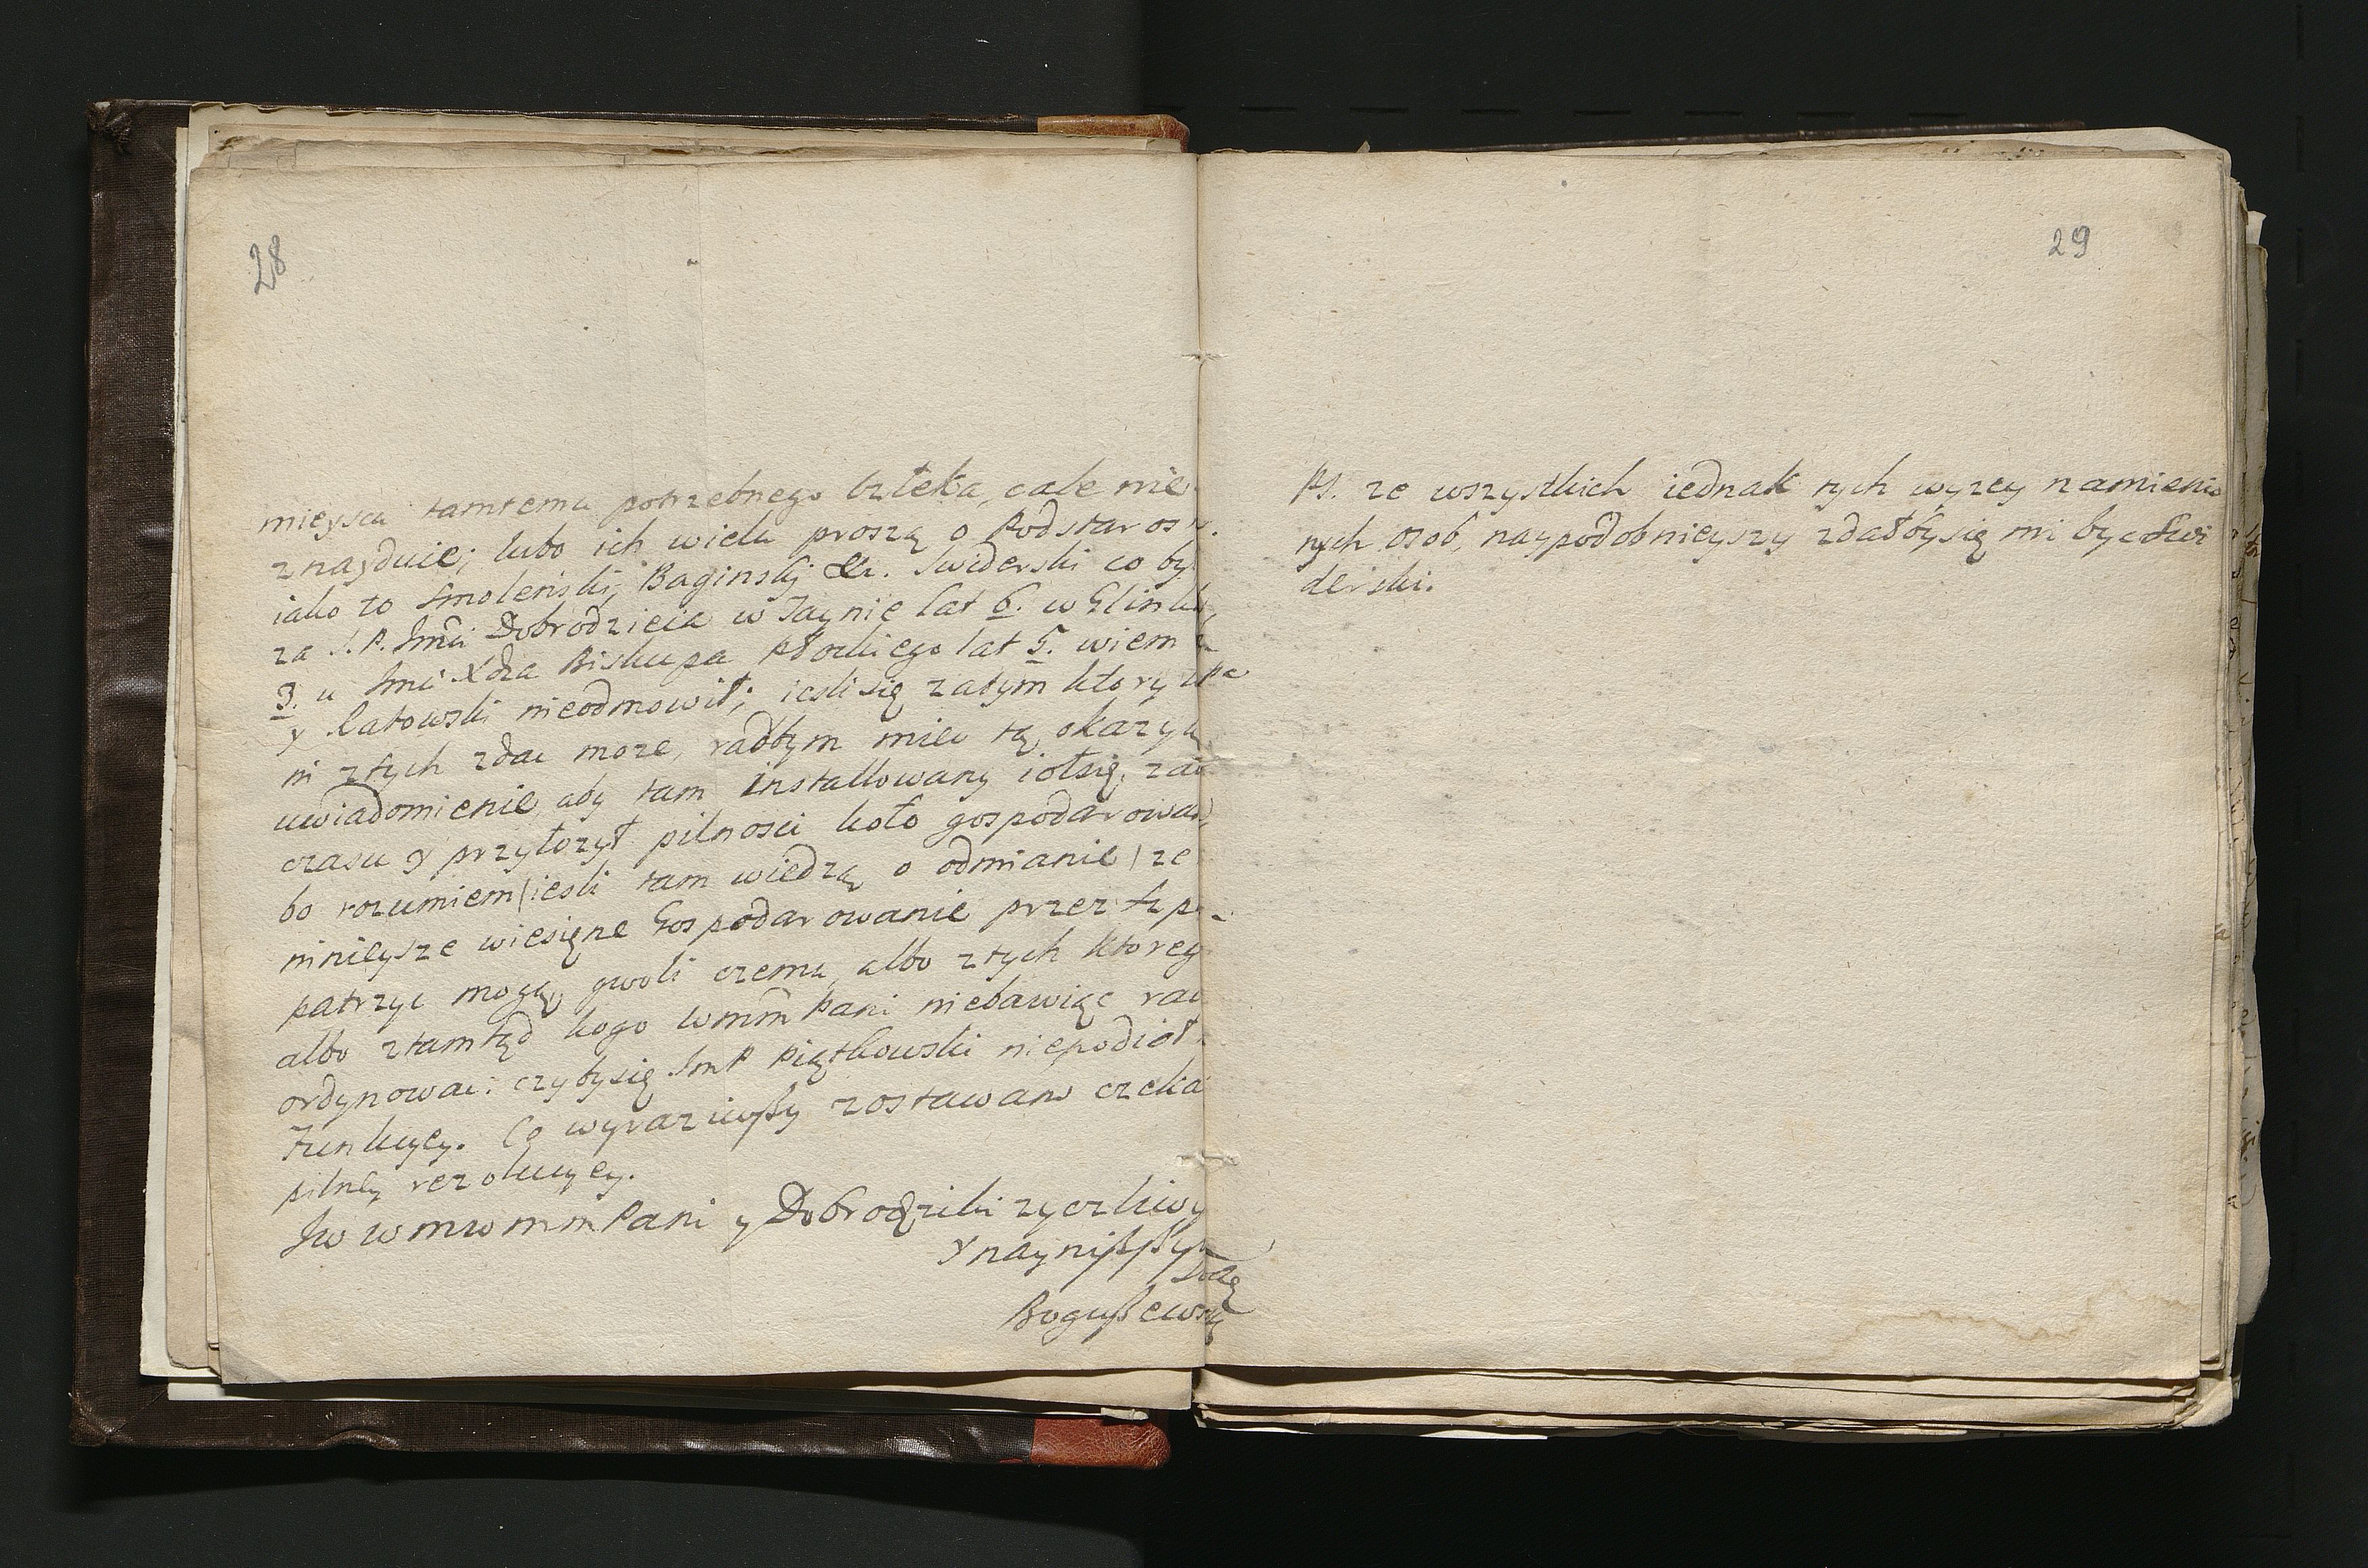 28
mieysca tamtemu potrzebnego człeka, cale nie
znayduie; lubo ich wielu proszą o Podstaros
iako to Smoleński, Baginskj &c. Swiderski co by
za S. P. Jmći Dobrodzieia w Jaynie lat 6. w Glinku
3. u Jmći Xdza Biskupa Płockiego lat 5. wiem
y Latowski nieodmowił; iesli się zatym ktory WPa
ni z tych zdać może, radbym mieć tę okazyą
uwiadomienie, aby tam installowany iąłsię, za
czasu y przyłozył pilnosci koło gospodarowa
bo rozumiem (iesli tam wiedzą o odmianie) ze
ninieysze wiesięne Gospodarowanie przez
patrzyc mogą, gwoli czemu, albo z tych ktoreg
albo ztamtąd kogo Wmm Pani niebawiąc rac
ordynowac: czybysię JmP Piątkowski niepodiął
Funkcyey. Co wyraziwßy zostawam czeka
pilney rezolucyey.
Jw wmwmm Pani y Dobrodzieki zyczliwy
Y naynißßy
Sługą
Bogußewski
29
PS. ze wszystkich iednak tych wyzey namienio
nych osob, naypodobnieyszy zdałbysię mi byc Swi
derski.